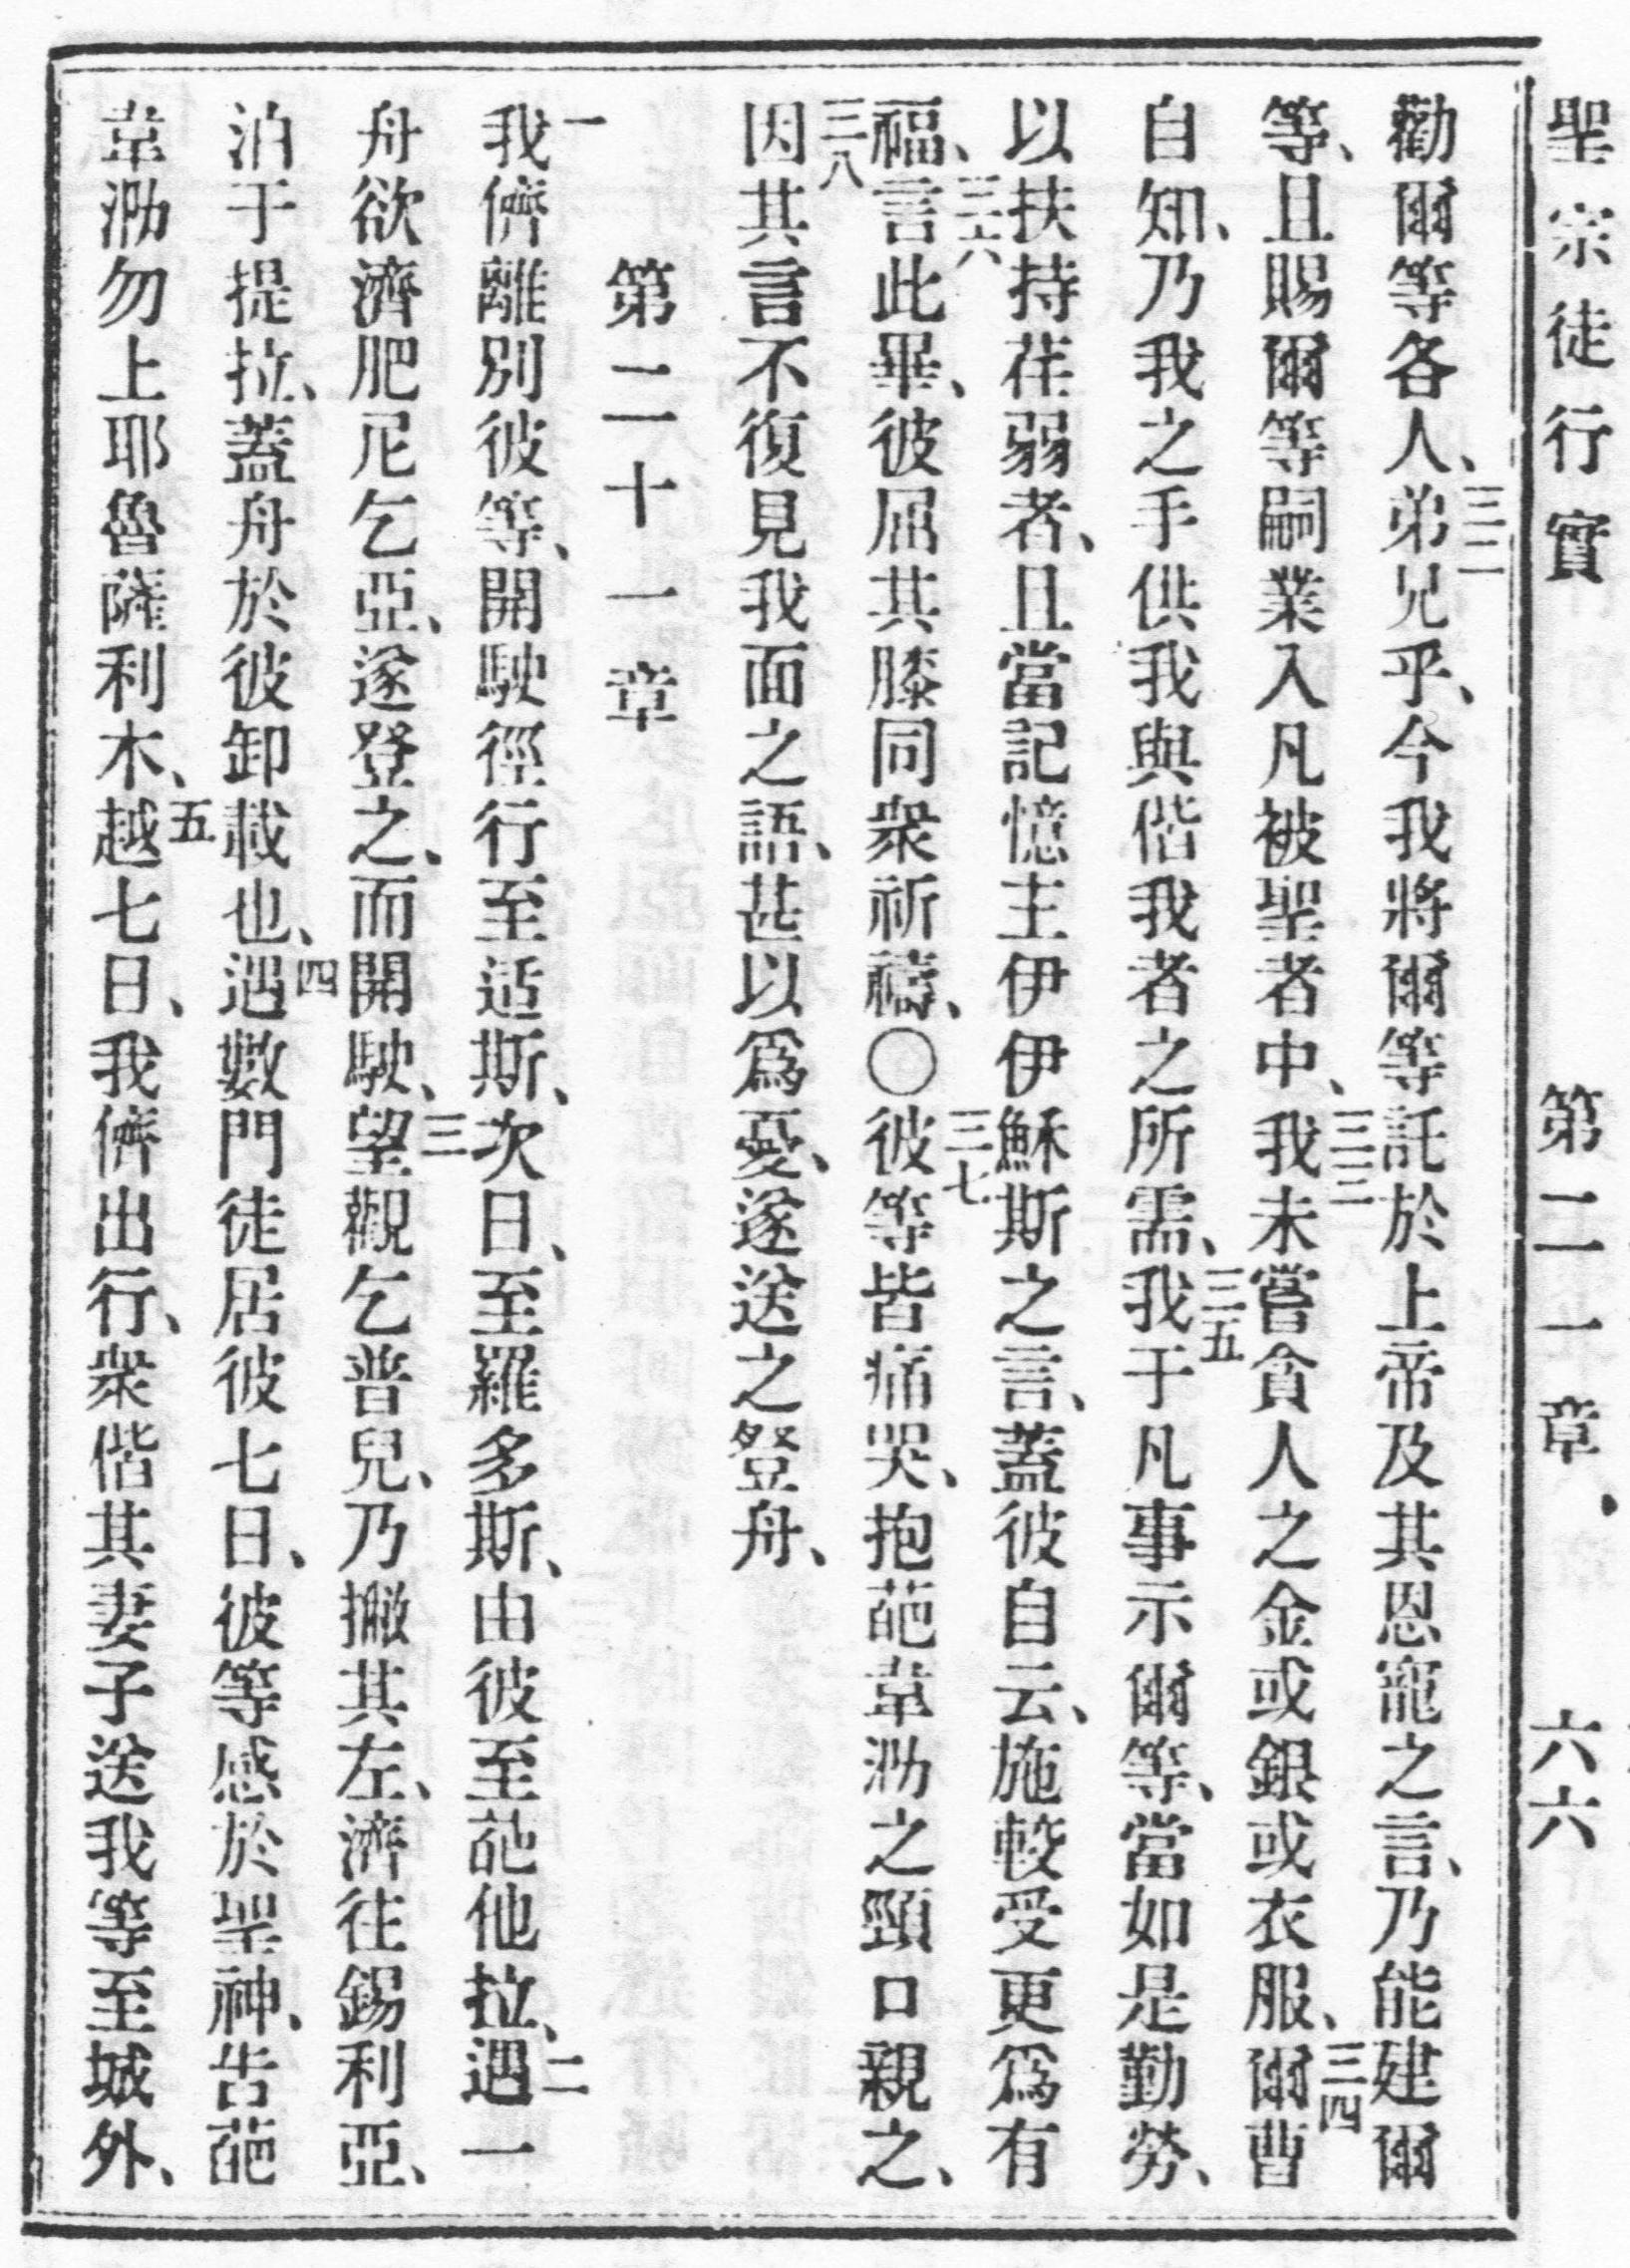 聖宗徒行實　第二一章、　六六
勸爾等各人、三二弟兄乎、今我將爾等託於上帝及其恩寵之言、乃能建爾
等、且賜爾等嗣業入凡被聖者中、三三我未嘗貪人之金或銀或衣服、三四爾曹
自知、乃我之手供我與偕我者之所需、三五我于凡事示爾等、當如是勤勞、
以扶持荏弱者、且當記憶主伊伊穌斯之言、蓋彼自云、施較受更爲有
福、三六言此畢、彼屈其膝同衆祈禱、〇三七彼等皆痛哭、抱葩韋泐之頸口親之、
三八因其言不復見我面之語、甚以爲憂、遂送之登舟、
第二十一章
一我儕離別彼等、開駛徑行至适斯、次日、至羅多斯、由彼至葩他拉、二遇一
舟欲濟肥尼乞亞、遂登之、而開駛、三望觀乞普兒、乃撇其左、濟往錫利亞、
泊于提拉、蓋舟於彼卸載也、四遇數門徒居彼七日、彼等感於聖神、告葩
韋泐勿上耶魯薩利木、五越七日、我儕出行、衆偕其妻子送我等至城外、